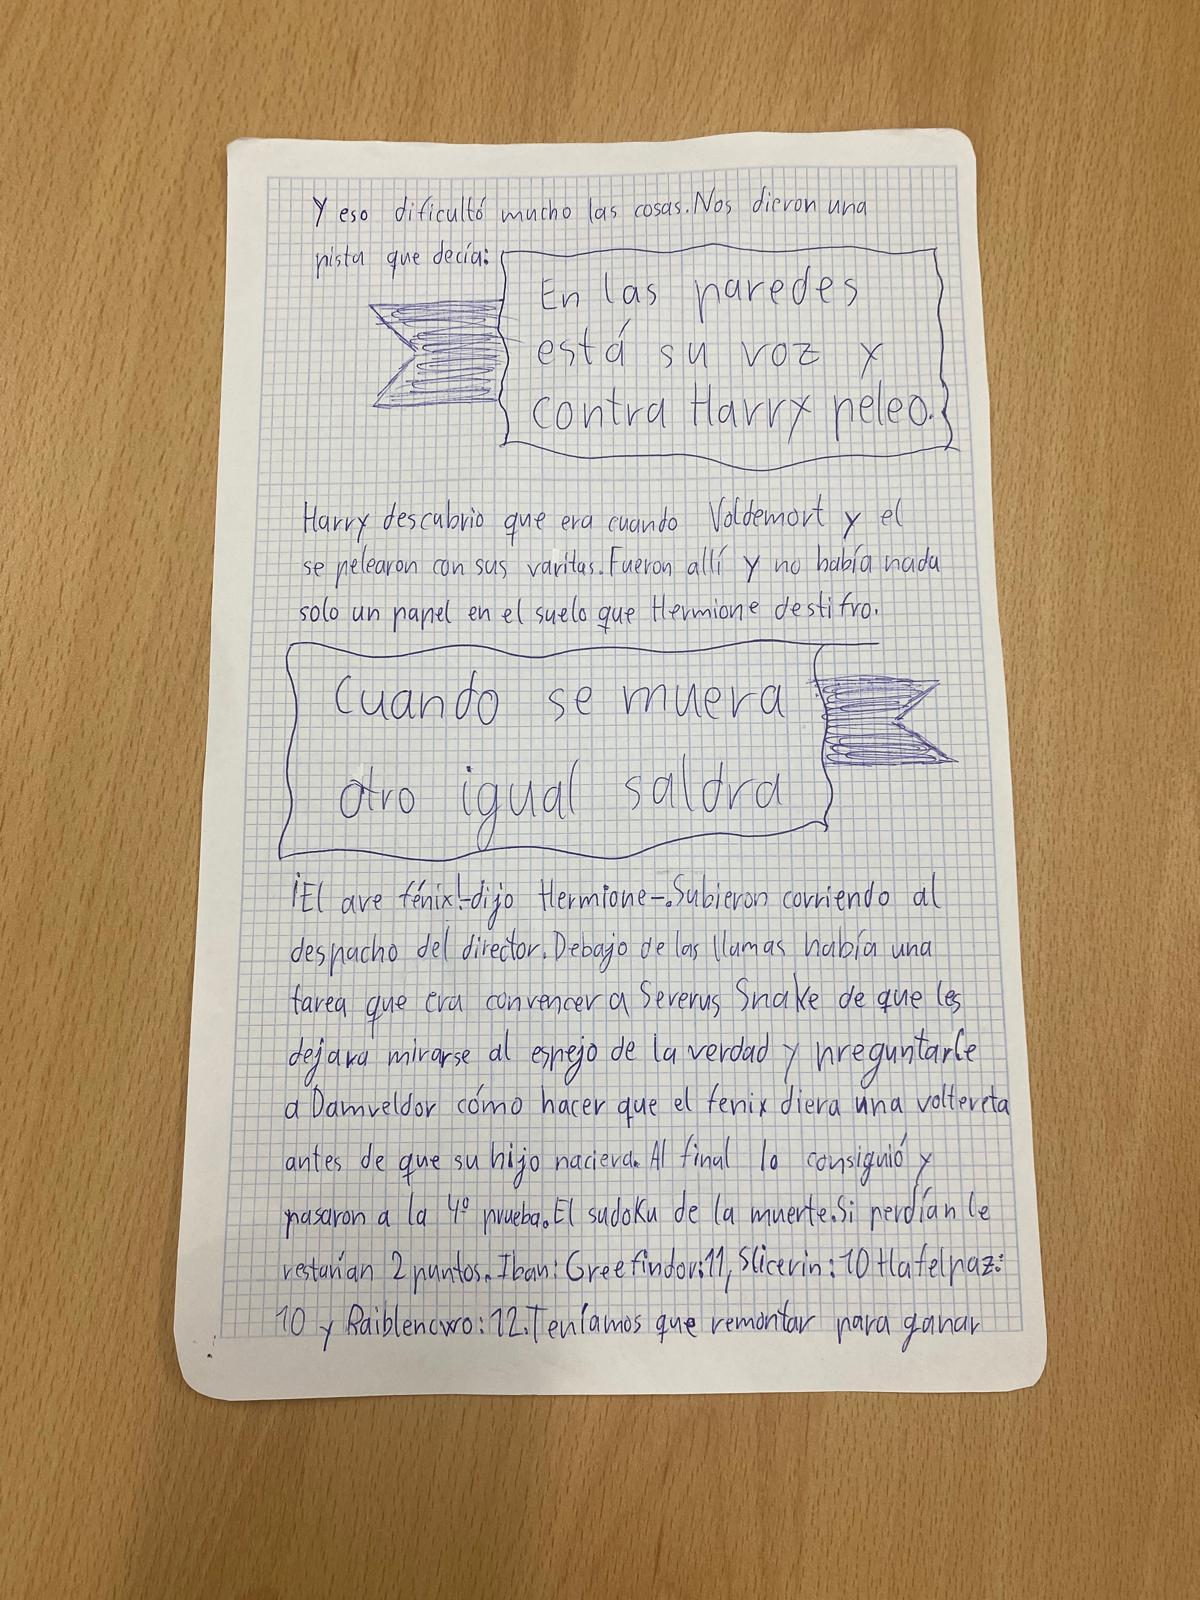 Y eso dificultó mucho las cosas. Nos dieron una
pista que decía:
En las paredes
está su voz y
contra Harry peleo.
Harry descubrio que era cuando Voldemort y el
se pelearon con sus varitas. Fueron allí y no había nada
solo un papel en el suelo que Hermione destifro.
Cuando se muera
otro igual saldra
¡El ave fénix!-dijo Hermione-. Subieron corriendo al
despacho del director. Debajo de las llamas había una
tarea que era convencer a Severus Snake de que les
dejara mirarse al espejo de la verdad y preguntarle
a Damveldor cómo hacer que el fenix diera una voltereta
antes de que su hijo naciera. Al final lo consiguió y
pasaron a la 4º prueba. El sudoku de la muerte. Si perdían le
restarían 2 puntos. Iban: Greefindor: 11, Slicerin: 10 Hafelpaz:
10 y Raiblencwo: 12. Teníamos que remontar para ganar